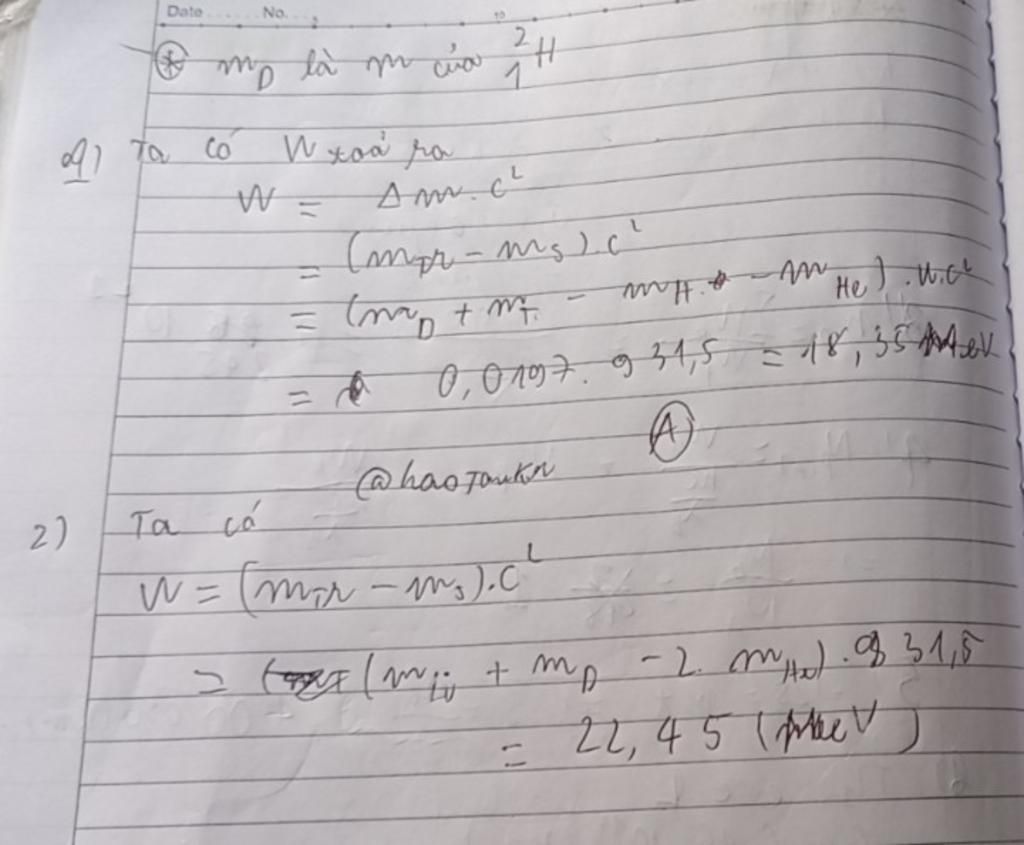 Date No.
⊛ m_D là m của ²₁H
1) Ta có W toả ra
W = Δm.c²
= (m_Tr - m_s).c²
= (m_D + m_T - m_H - m_He).u.c²
= 0,0197.931,5 = 18,35 MeV
A
@haoTauKn
2) Ta có
W = (m_Tr - m_s).c²
= (m_Li + m_D - 2.m_He).931,5
= 22,45 (MeV)